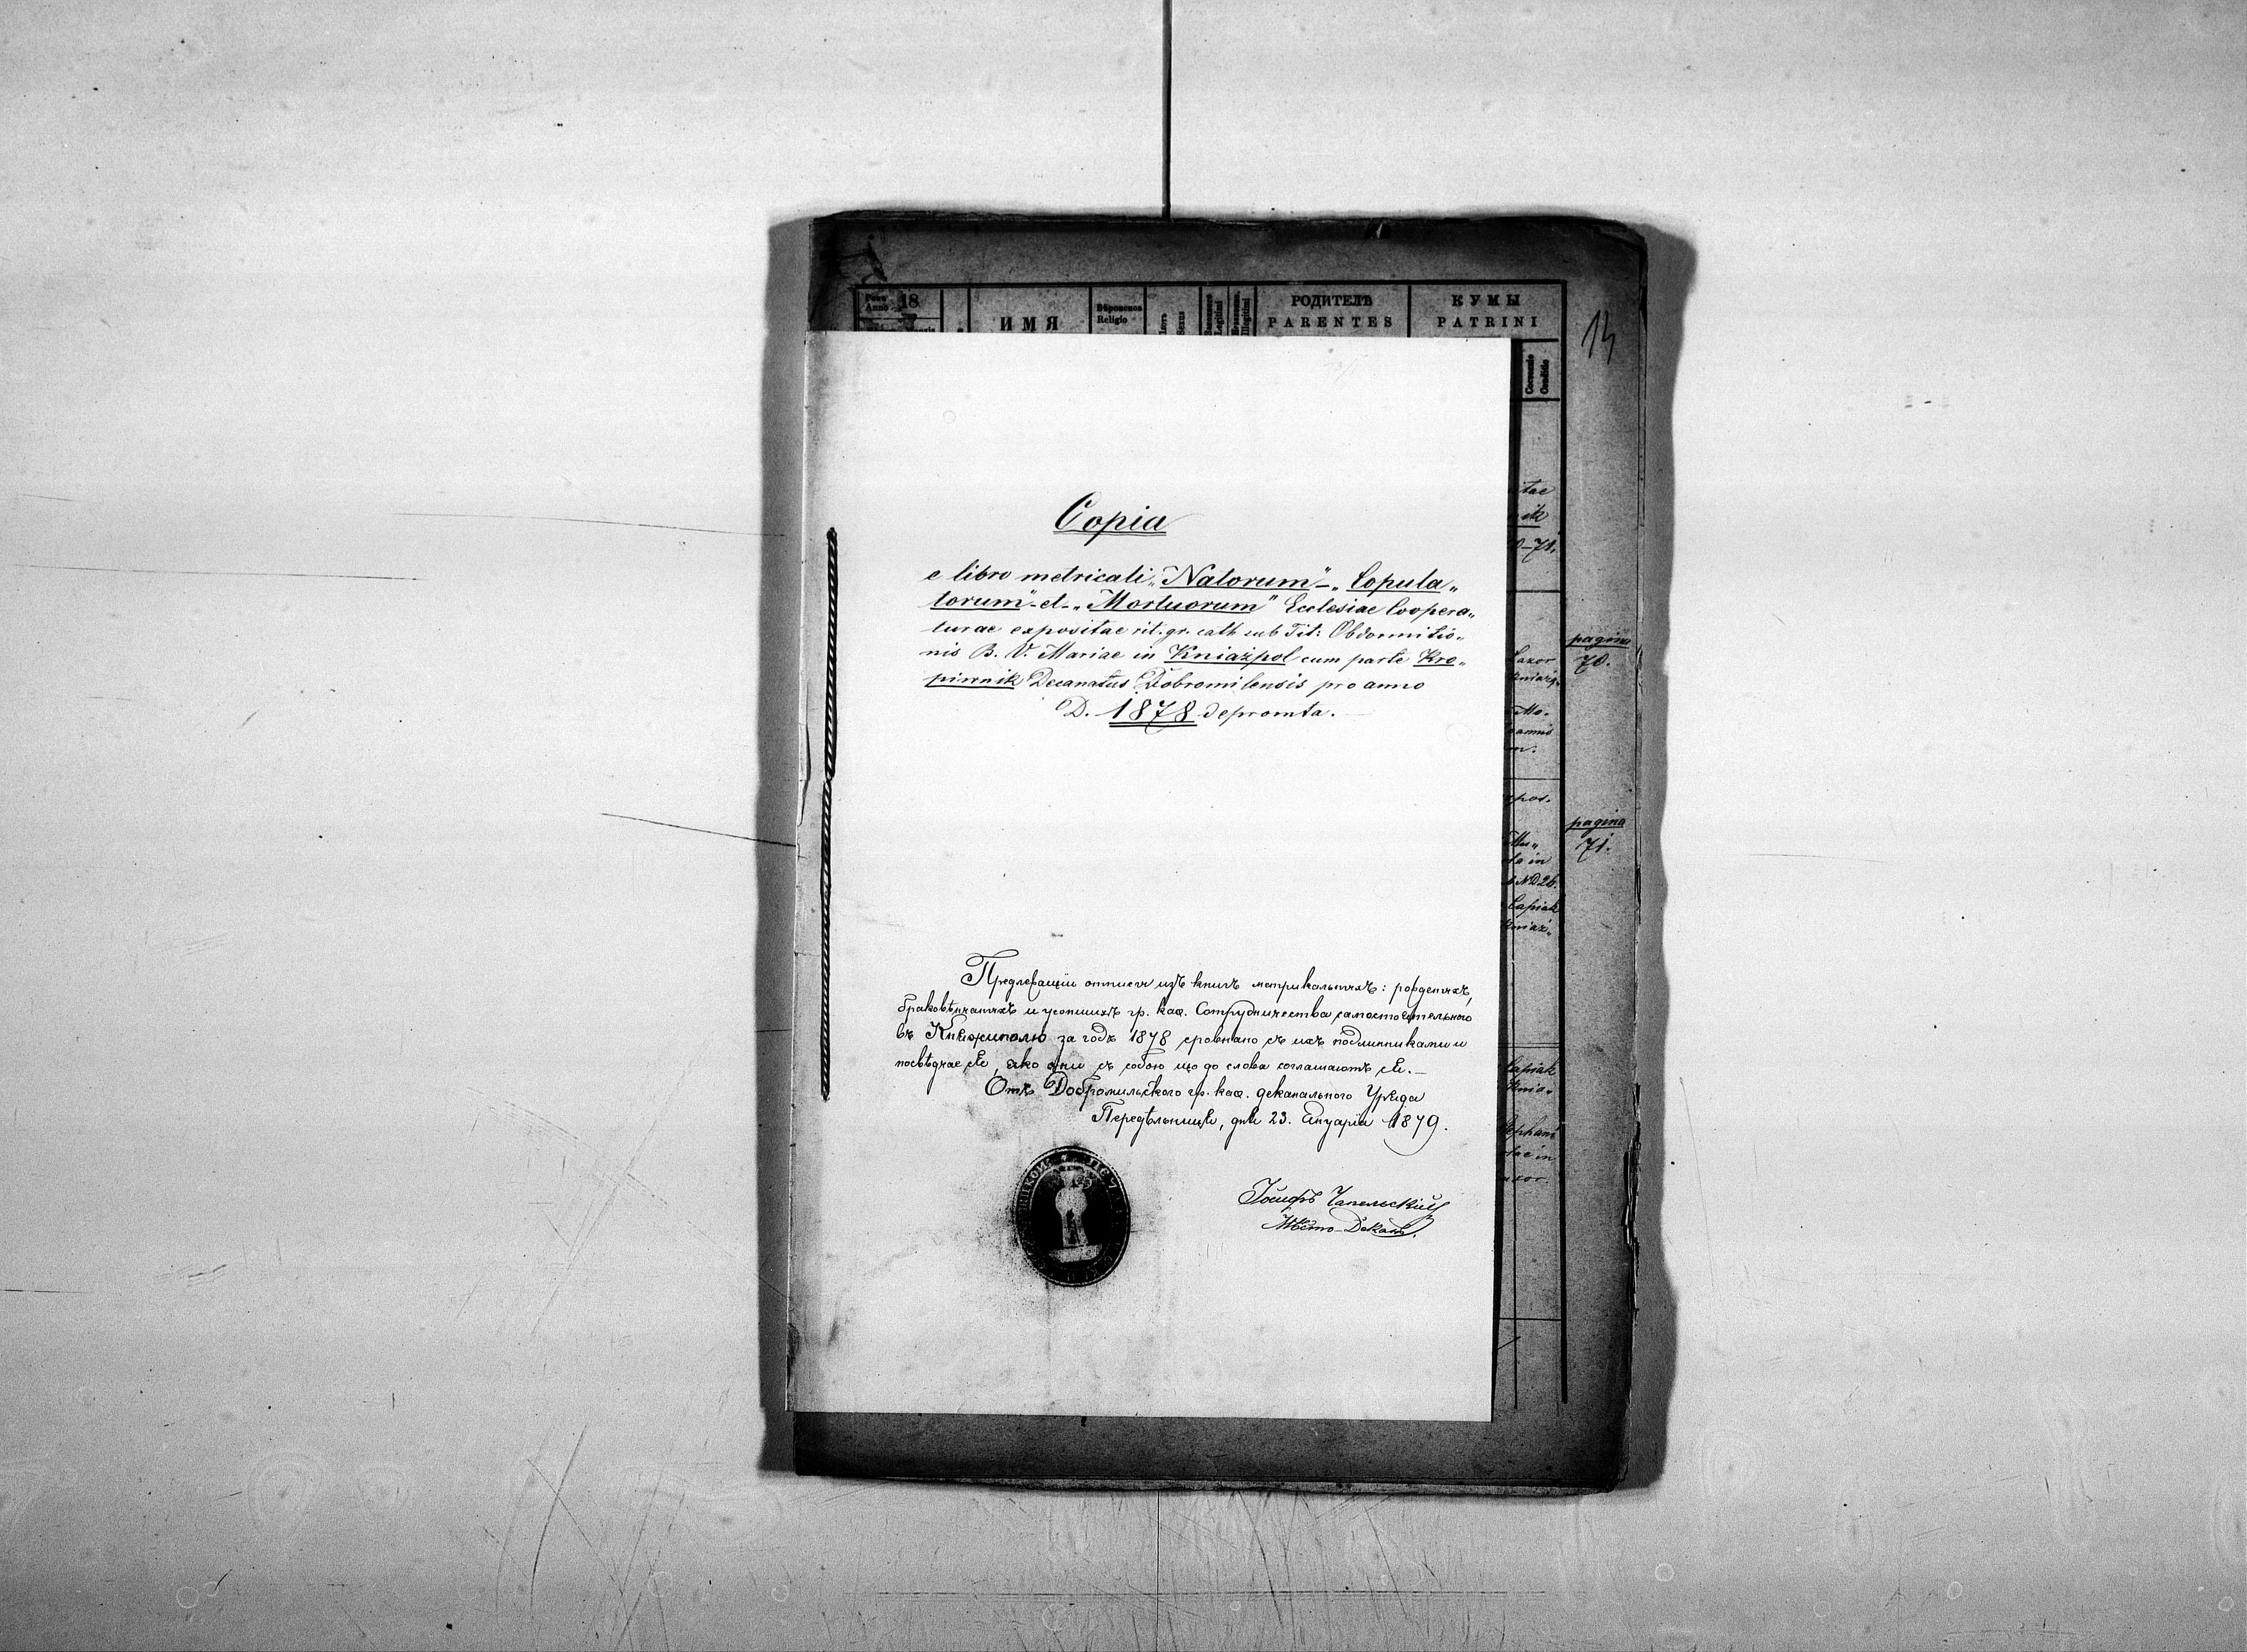 Рокъ
Anno 18
ИМЯ
Вѣроиспов
Religio
Sexus
Legitimi
Illegitimi
РОДИТЕЛѢ
PARENTES
КУМЫ
PATRINI
Conditio
13
Copia
e libro metricali „Natorum"-„Copula„
torum"-et-„Mortuorum" Ecclesiae Coopera„
turae expositae rit. gr. cath sub Tit: Obdormitio„
nis B. V. Mariae in Kniażpol cum parte Kro„
piwnik Decanatus Dobromilensis pro anno
D. 1878 depromta.—
Предлежащіи отписи изъ книгъ метрикальныхъ: рожденыхъ,
браковѣнчаныхъ и усопшихъ гр. каѳ. Сотрудничества самостоятельного
въ Княжиполю за годъ 1878 сровнано съ ихъ подлинниками и
посвѣдчаеся, яко они съ собою що до слова соглашаютъ ся.—
Отъ Добромильского гр. каѳ. деканального Уряда
Передѣльница, дня 23. Януарія 1879.
Іосифъ Чапельскій
Мѣсто-Деканъ.
tae
ik
0-71.
pagina
70.
pagina
71.
in
ND 26.
Capiak
Capiak